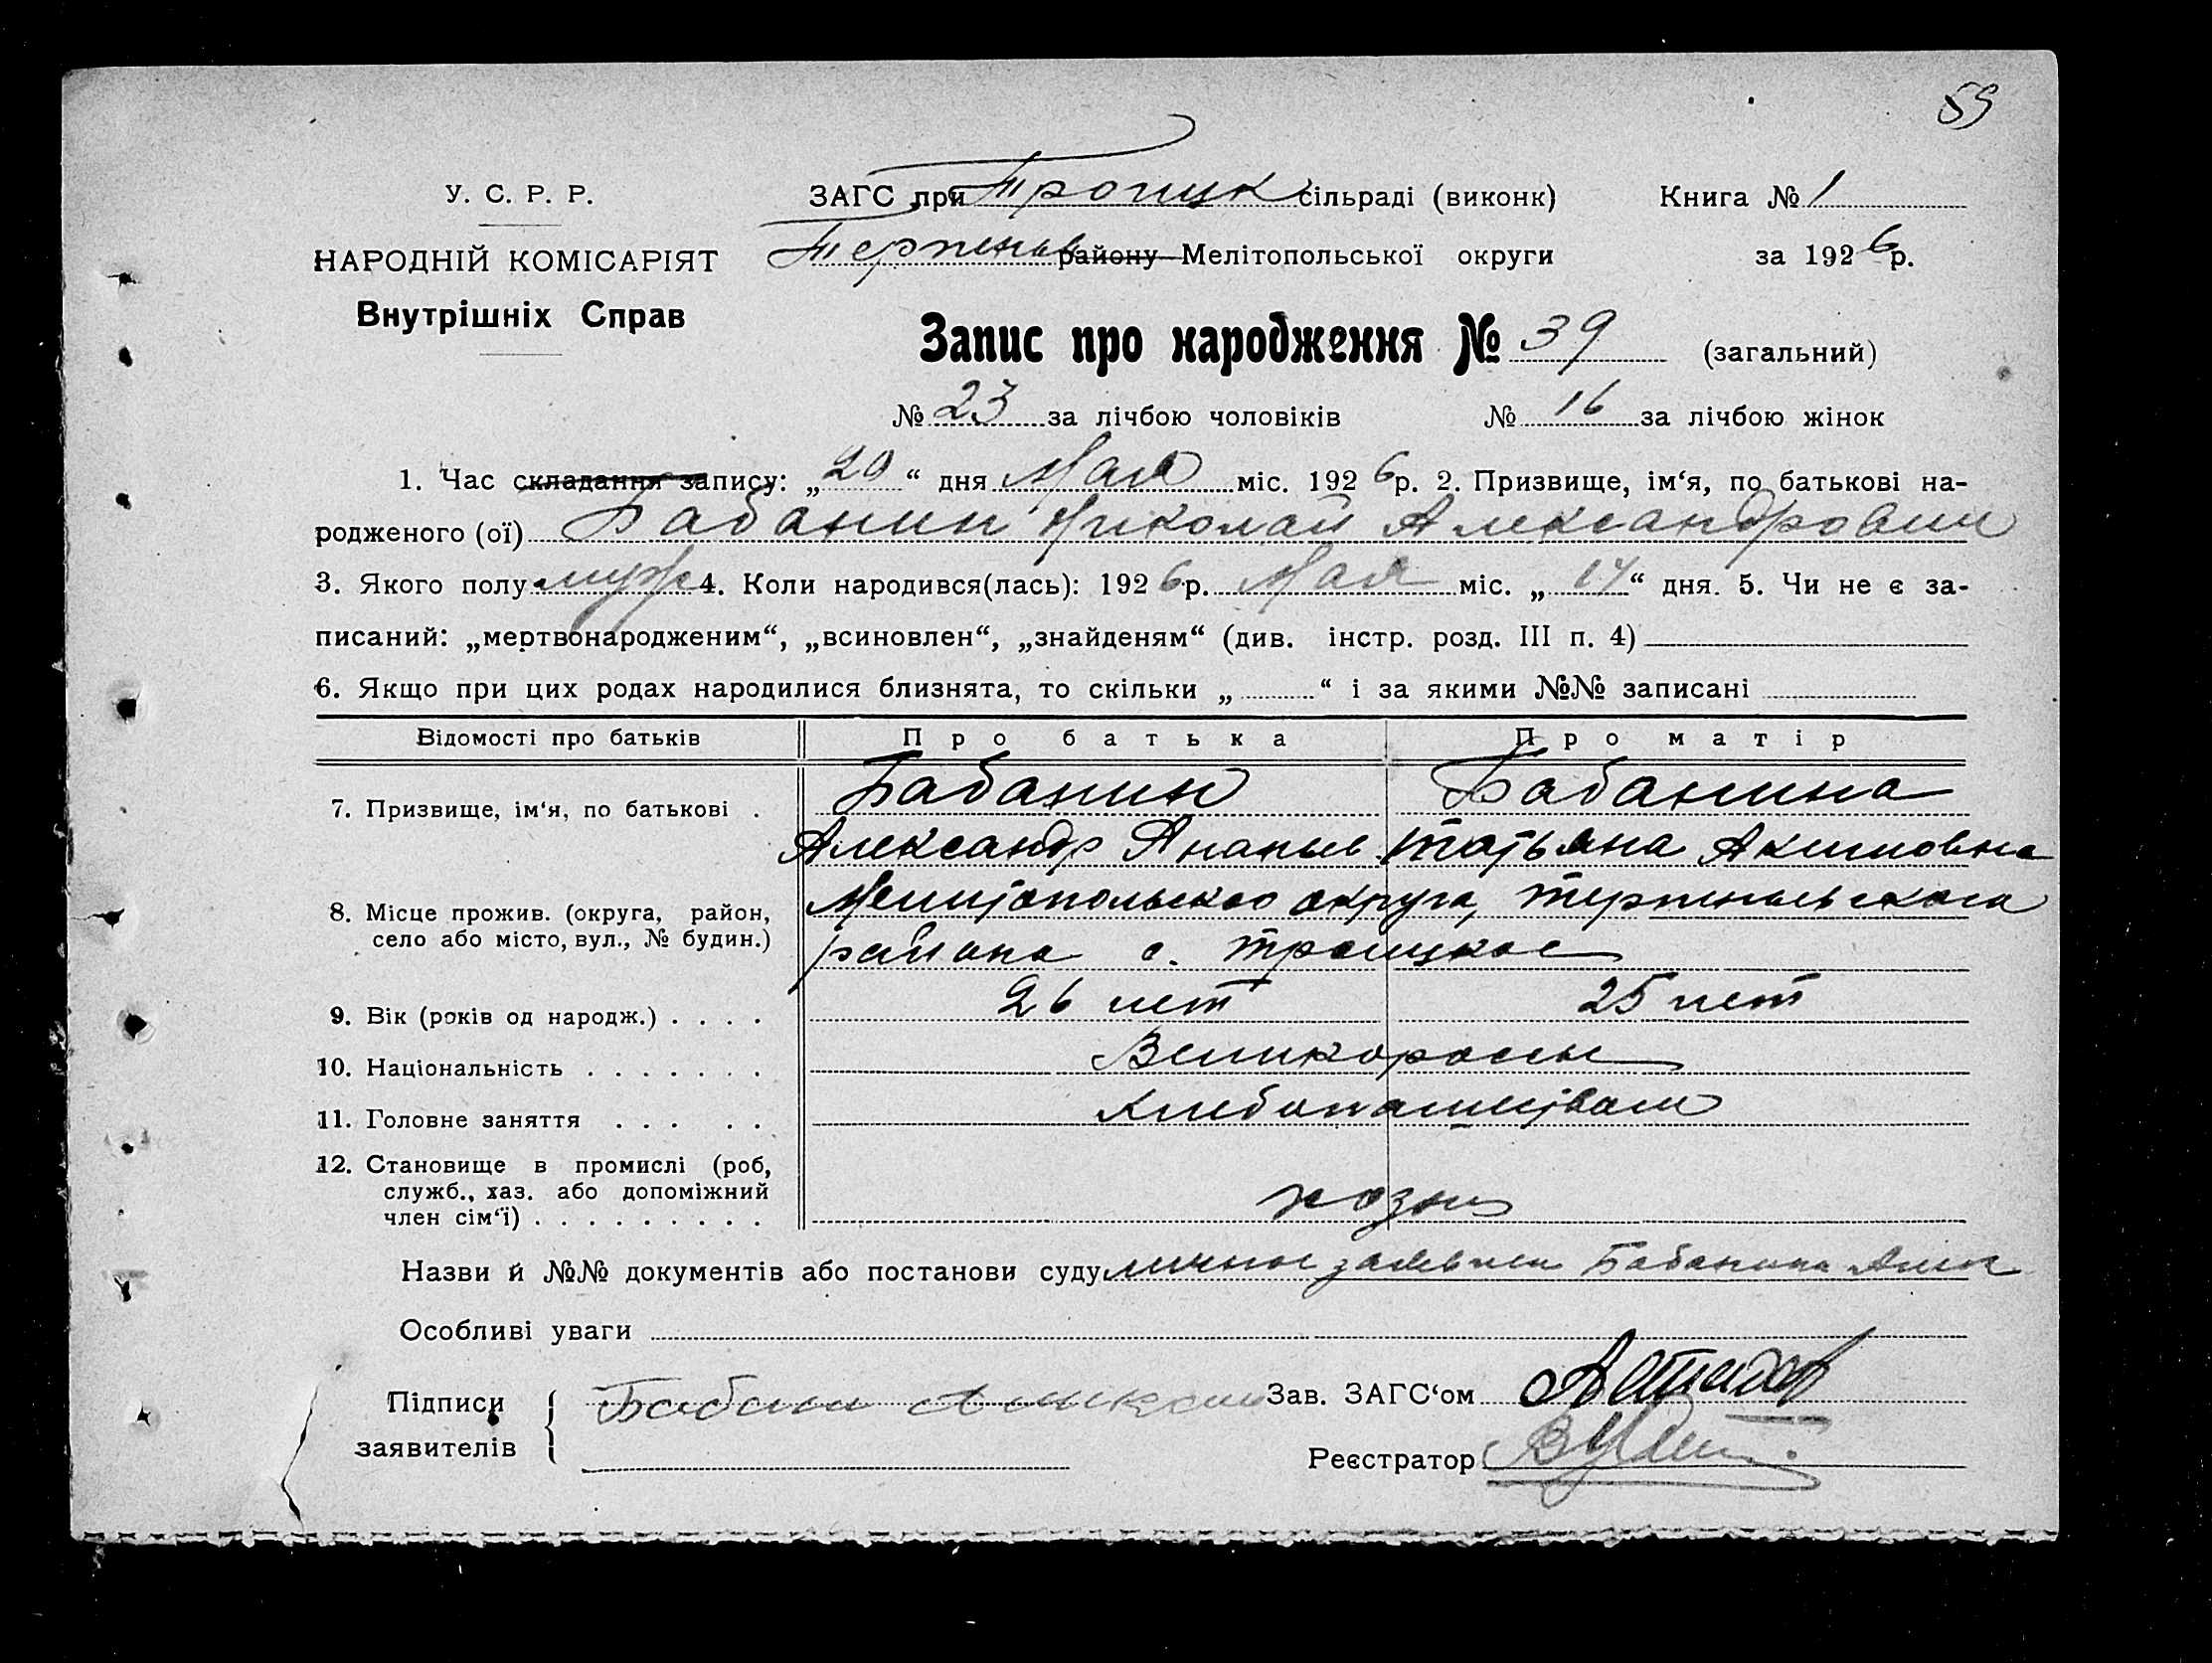 59
У. С. Р. Р. ЗАГС при Троицк сільраді (виконк) Книга № 1
НАРОДНІЙ КОМІСАРІЯТ Терпеньев району Мелітопольської округи за 1926 р.
Внутрішніх Справ
Запис про народження № 39 (загальний)
№ 23 за лічбою чоловіків № 16 за лічбою жінок
1. Час складання запису: „20“ дня Мая міс. 1926 р. 2. Призвище, ім‘я, по батькові на-
родженого (ої) Бабанин Николай Александрович
3. Якого полу муж 4. Коли народився(лась): 1926 р. Мая міс. „14“ дня. 5. Чи не є за-
писаний: „мертвонародженим“, „всиновлен“, „знайденям“ (див. інстр. розд. III п. 4)
6. Якщо при цих родах народилися близнята, то скільки „ “ і за якими №№ записані
Відомості про батьків Про батька Про матір
7. Призвище, ім‘я, по батькові . Бабанин Бабанина
Александр Ананьев Татьяна Акимовна
8. Місце прожив. (округа, район, Мелитопольского округа, Терпеньевского
село або місто, вул., № будин.) района с. Троицкое
9. Вік (років од народж.) . . . . 26 лет 25 лет
10. Національність . . . . . . . Великороссы
11. Головне заняття . . . . . Хлебопашеством
12. Становище в промислі (роб,
служб., хаз. або допоміжний
член сім‘ї) . . . . . . . . . хозяин
Назви й №№ документів або постанови суду личное заявлен Бабанина Алек
Особливі уваги
Підписи Бабанин Зав. ЗАГС‘ом
заявителів Реєстратор